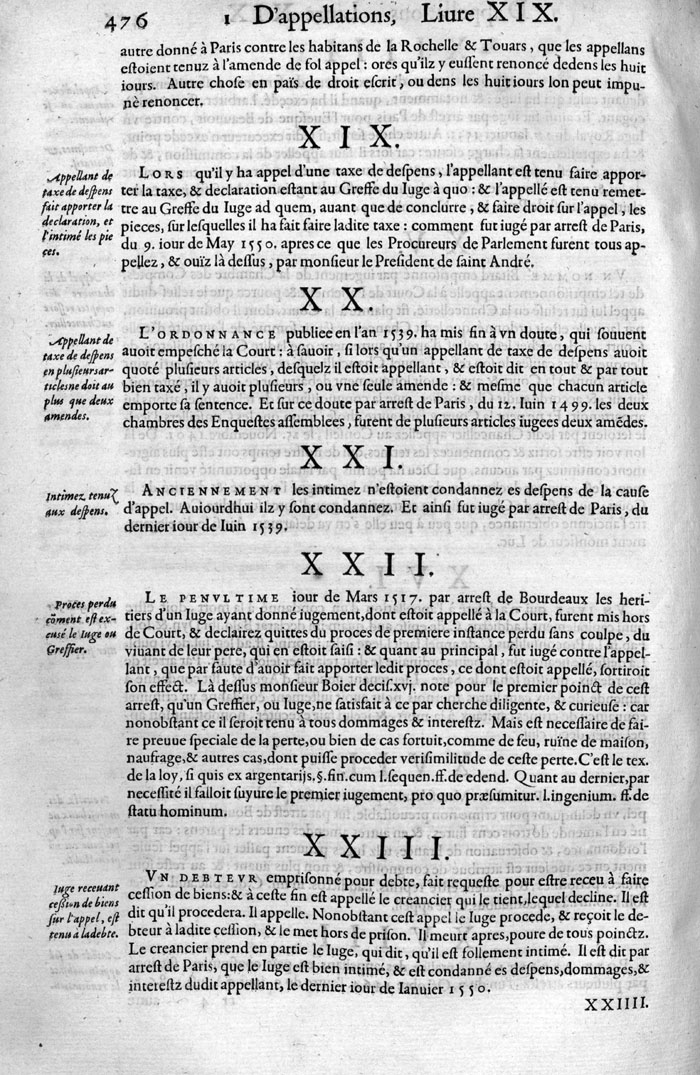 476 1 D'appellations, Liure XIX.
autre donné à Paris contre les habitans de la Rochelle & Touars, que les appellans
estoient tenuz à l'amende de fol appel : ores qu'ilz y eussent renoncé dedens les huit
iours. Autre chose en païs de droit escrit, ou dens les huit iours lon peut impu-
nè renoncer.
XIX.
Appellant de
taxe de despens
fait apporter la
declaration, et
l'intimé les pie
ces.
LORS qu'il y ha appel d'une taxe de despens, l'appellant est tenu faire appor-
ter la taxe, & declaration estant au Greffe du Iuge à quo : & l'appellé est tenu remet-
tre au Greffe du Iuge ad quem, auant que de conclurre, & faire droit sur l'appel, les
pieces, sur lesquelles il ha fait faire ladite taxe : comment fut iugé par arrest de Paris,
du 9. iour de May 1550. apres ce que les Procureurs de Parlement furent tous ap-
pellez, & ouïz là dessus, par monsieur le President de saint André.
XX.
Appellant de
taxe de despens
en plusieurs ar-
ticles ne doit au
plus que deux
amendes.
L'ORDONNANCE publiee en l'an 1539. ha mis fin à vn doute, qui souuent
auoit empesché la Court : à sauoir, si lors qu'un appellant de taxe de despens auoit
quoté plusieurs articles, desquelz il estoit appellant, & estoit dit en tout & par tout
bien taxé, il y auoit plusieurs, ou vne seule amende : & mesme que chacun article
emporte sa sentence. Et sur ce doute par arrest de Paris, du 12. Iuin 1499. les deux
chambres des Enquestes assemblees, furent de plusieurs articles iugees deux amēdes.
XXI.
Intimez tenuz
aux despens.
ANCIENNEMENT les intimez n'estoient condannez es despens de la cause
d'appel. Auiourdhui ilz y sont condannez. Et ainsi fut iugé par arrest de Paris, du
dernier iour de Iuin 1539.
XXII.
Proces perdu
cōment est ex-
cusé le Iuge ou
Greffier.
LE PENVLTIME iour de Mars 1517. par arrest de Bourdeaux les heri-
tiers d'un Iuge ayant donné iugement, dont estoit appellé à la Court, furent mis hors
de Court, & declairez quittes du proces de premiere instance perdu sans coulpe, du
viuant de leur pere, qui en estoit saisi : & quant au principal, fut iugé contre l'appel-
lant, que par faute d'auoir fait apporter ledit proces, ce dont estoit appellé, sortiroit
son effect. Là dessus monsieur Boier decis.xvj. note pour le premier poinct de cest
arrest, qu'un Greffier, ou Iuge, ne satisfait à ce par cherche diligente, & curieuse : car
nonobstant ce il seroit tenu à tous dommages & interestz. Mais est necessaire de fai-
re preuue speciale de la perte, ou bien de cas fortuit, comme de feu, ruïne de maison,
naufrage, & autres cas, dont puisse proceder verisimilitude de ceste perte. C'est le tex.
de la loy, si quis ex argentarijs, §. fin. cum l. sequen. ff. de edend. Quant au dernier, par
necessité il falloit suyure le premier iugement, pro quo præsumitur. l. ingenium. ff. de
statu hominum.
XXIII.
Iuge receuant
cession de biens
sur l'appel, est
tenu à la debte.
VN DEBTEVR emprisonné pour debte, fait requeste pour estre receu à faire
cession de biens: & à ceste fin est appellé le creancier qui le tient, lequel decline. Il est
dit qu'il procedera. Il appelle. Nonobstant cest appel le Iuge procede, & reçoit le de-
bteur à ladite cession, & le met hors de prison. Il meurt apres, poure de tous poinctz.
Le creancier prend en partie le Iuge, qui dit, qu'il est follement intimé. Il est dit par
arrest de Paris, que le Iuge est bien intimé, & est condanné es despens, dommages, &
interestz dudit appellant, le dernier iour de Ianuier 1550.
XXIIII.